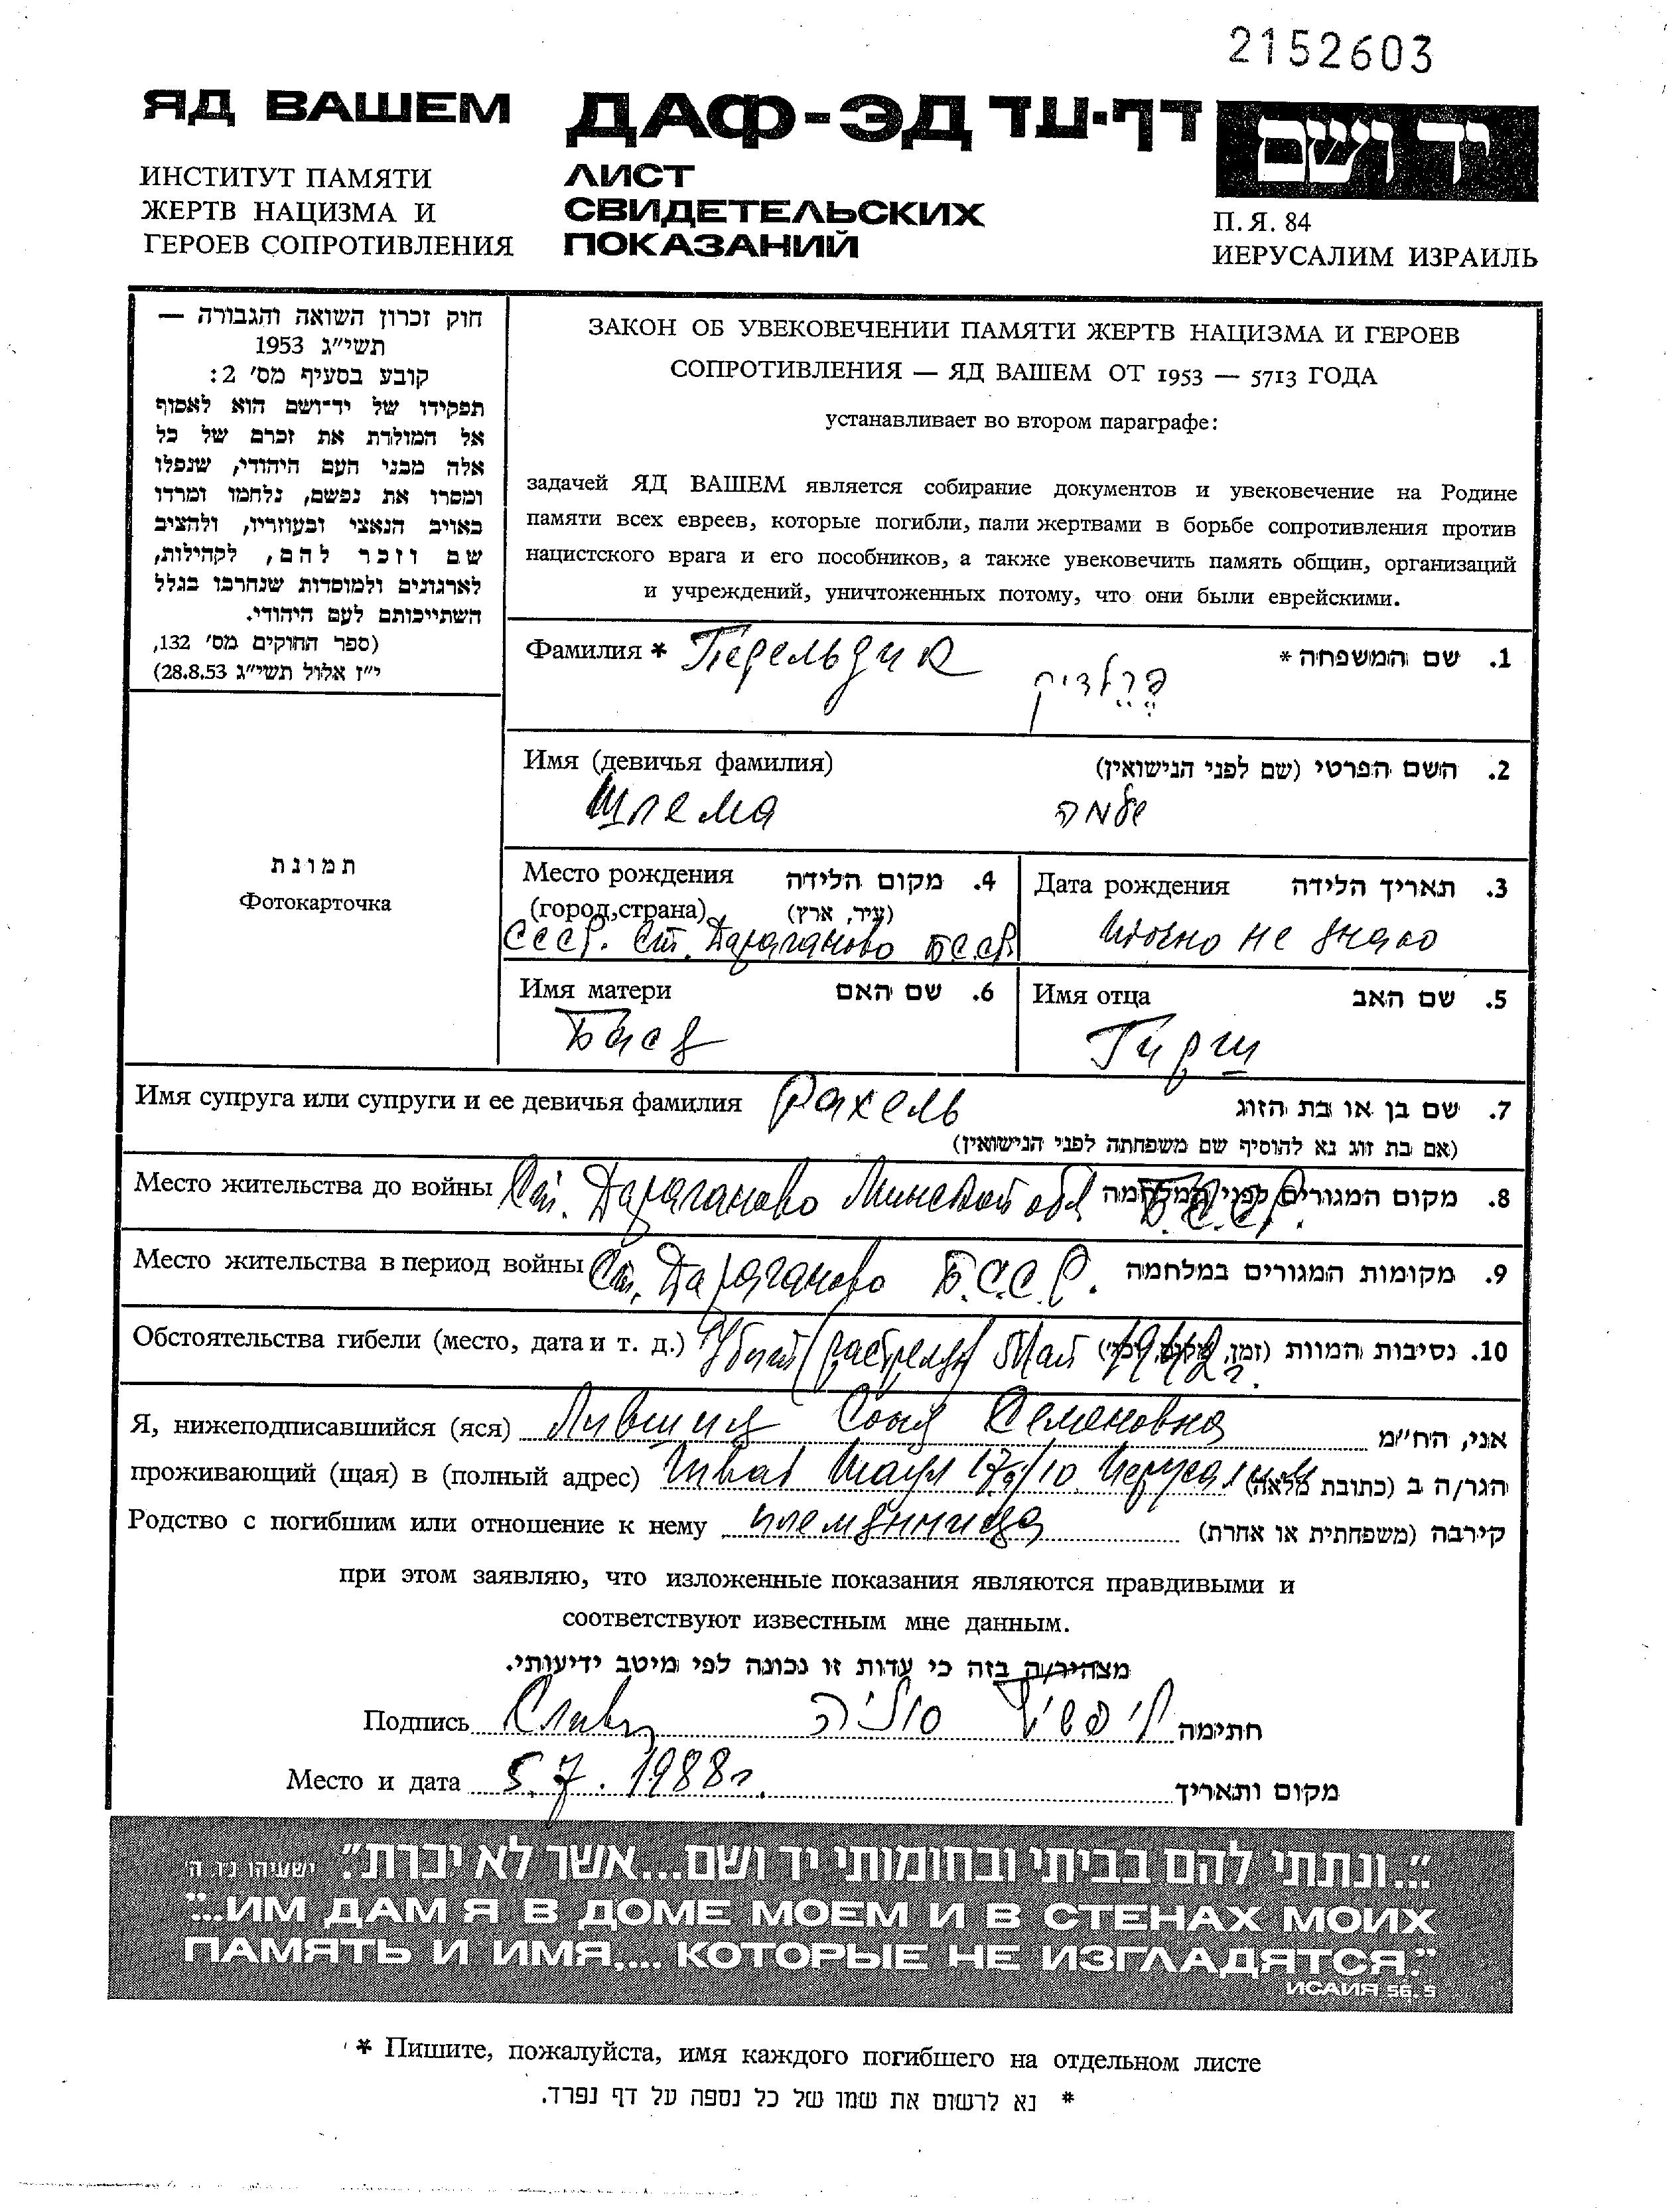 2152603
ЯД ВАШЕМ
ИНСТИТУТ ПАМЯТИ
ЖЕРТВ НАЦИЗМА И
ГЕРОЕВ СОПРОТИВЛЕНИЯ
ДАФ-ЭД דף-עד
ЛИСТ
СВИДЕТЕЛЬСКИХ
ПОКАЗАНИЙ
יד ושם
П. Я. 84
ИЕРУСАЛИМ ИЗРАИЛЬ
חוק זכרון השואה והגבורה —
תשי״ג 1953
קובע בסעיף מס׳ 2:
תפקידו של יד־ושם הוא לאסוף
אל המולדת את זכרם של כל
אלה מבני העם היהודי, שנפלו
ומסרו את נפשם, נלחמו ומרדו
באויב הנאצי ובעוזריו, ולהציב
שם וזכר להם, לקהילות,
לארגונים ולמוסדות שנחרבו בגלל
השתייכותם לעם היהודי.
(ספר החוקים מס׳ 132,
י״ז אלול תשי״ג 28.8.53)
ЗАКОН ОБ УВЕКОВЕЧЕНИИ ПАМЯТИ ЖЕРТВ НАЦИЗМА И ГЕРОЕВ
СОПРОТИВЛЕНИЯ — ЯД ВАШЕМ ОТ 1953 — 5713 ГОДА
устанавливает во втором параграфе:
задачей ЯД ВАШЕМ является собирание документов и увековечение на Родине
памяти всех евреев, которые погибли, пали жертвами в борьбе сопротивления против
нацистского врага и его пособников, а также увековечить память общин, организаций
и учреждений, уничтоженных потому, что они были еврейскими.
Фамилия * Перельдик פרלדיק 1. שם המשפחה *
Имя (девичья фамилия) 2. השם הפרטי (שם לפני הנישואין)
Шлема שלמה
תמונת
Фотокарточка
Место рождения 4. מקום הלידה
(город,страна) (עיר, ארץ)
СССР. Ст. Дараганово БССР
Дата рождения 3. תאריך הלידה
точно не знаю
Имя матери 6. שם האם
Бася
Имя отца 5. שם האב
Гирш
Имя супруга или супруги и ее девичья фамилия Рахель 7. שם בן או בת הזוג
(אם בת זוג נא להוסיף שם משפחתה לפני הנישואין)
Место жительства до войны Ст. Дараганово Минской обл Б.С.С.Р. 8. מקום המגורים לפני המלחמה
Место жительства в период войны Ст. Дараганово Б.С.С.Р. 9. מקומות המגורים במלחמה
Обстоятельства гибели (место, дата и т. д.) Убит (расстрелян Май 1942 г. 10. נסיבות המוות (זמן, מקום, וכו׳)
Я, нижеподписавшийся (яся) Лившиц Соня Семеновна אני, הח״מ
проживающий (щая) в (полный адрес) Гиват Шаул 17/10 Иерусалим הגר/ה ב (כתובת מלאה)
Родство с погибшим или отношение к нему племянница קירבה (משפחתית או אחרת)
при этом заявляю, что изложенные показания являются правдивыми и
соответствуют известным мне данным.
מצהיר/ה בזה כי עדות זו נכונה לפי מיטב ידיעותי.
Подпись ליפשיץ סוניה חתימה
Место и дата 5.7.1988г. מקום ותאריך
״...ונתתי להם בביתי ובחומותי יד ושם...אשר לא יכרת״. ישעיהו נ״ו, ה׳
"...ИМ ДАМ Я В ДОМЕ МОЕМ И В СТЕНАХ МОИХ
ПАМЯТЬ И ИМЯ,... КОТОРЫЕ НЕ ИЗГЛАДЯТСЯ."
ИСАИЯ 56. 5
* Пишите, пожалуйста, имя каждого погибшего на отдельном листе
* נא לרשום את שמו של כל נספה על דף נפרד.